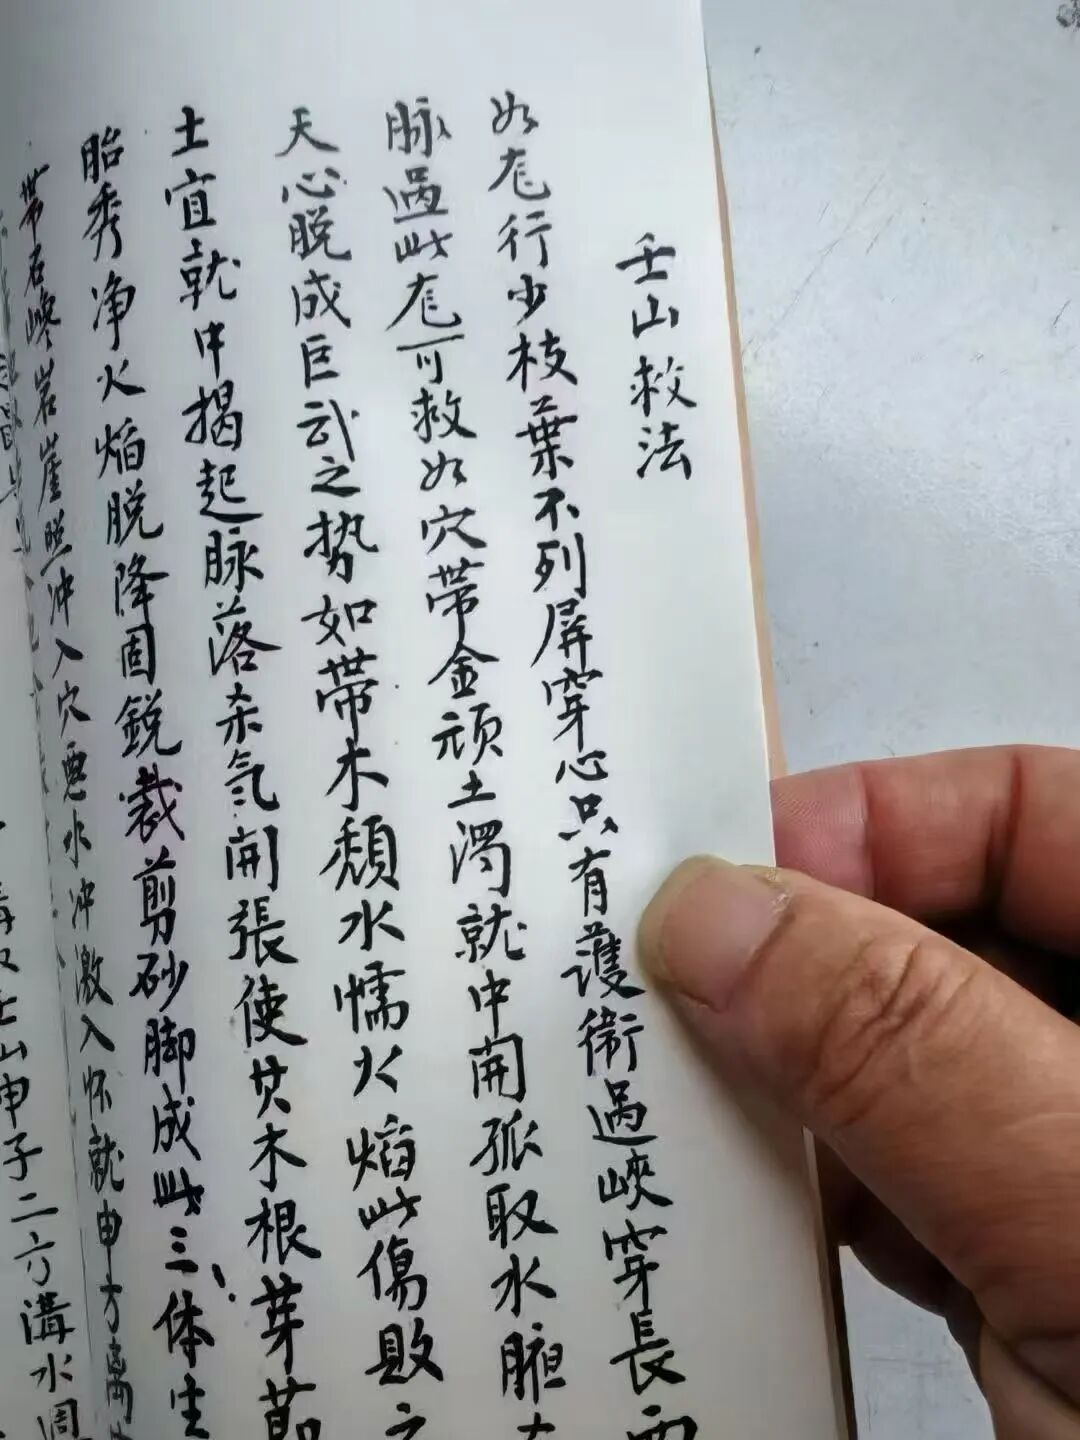 壬山救法
如龙行少枝葉不列屏穿心只有護衛過峽穿長而
脉過此龙可救如穴帶金頑土濁就中開孤取水脏
天心脱成巨武之势如帶木頹水懦火焰此傷敗之
土宜就中揭起脉落杀氣開張使其木根芽
胎秀净火焰脱降固鋭裁剪砂脚成此三体生
帶石巉岩崖照冲入穴惡水冲激入怀就申方
壬山申子二六溝水周